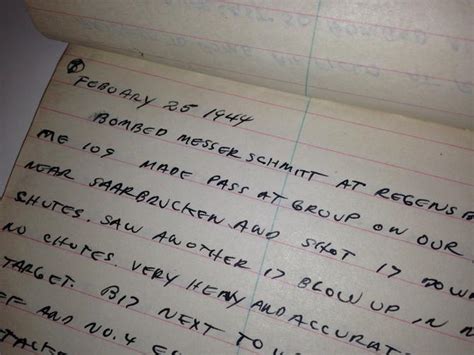 FEBUARY 25 1944
BOMBED MESSERSCHMITT AT REGENS
ME 109 MADE PASS AT GROUP ON OUR
NEAR SAARBRUCKEN AND SHOT 17 DOWN
SHUTES. SAW ANOTHER 17 BLOW UP IN
NO CHUTES. VERY HEAVY AND ACCURAT
TARGET. B17 NEXT TO
FF AND NO. 4